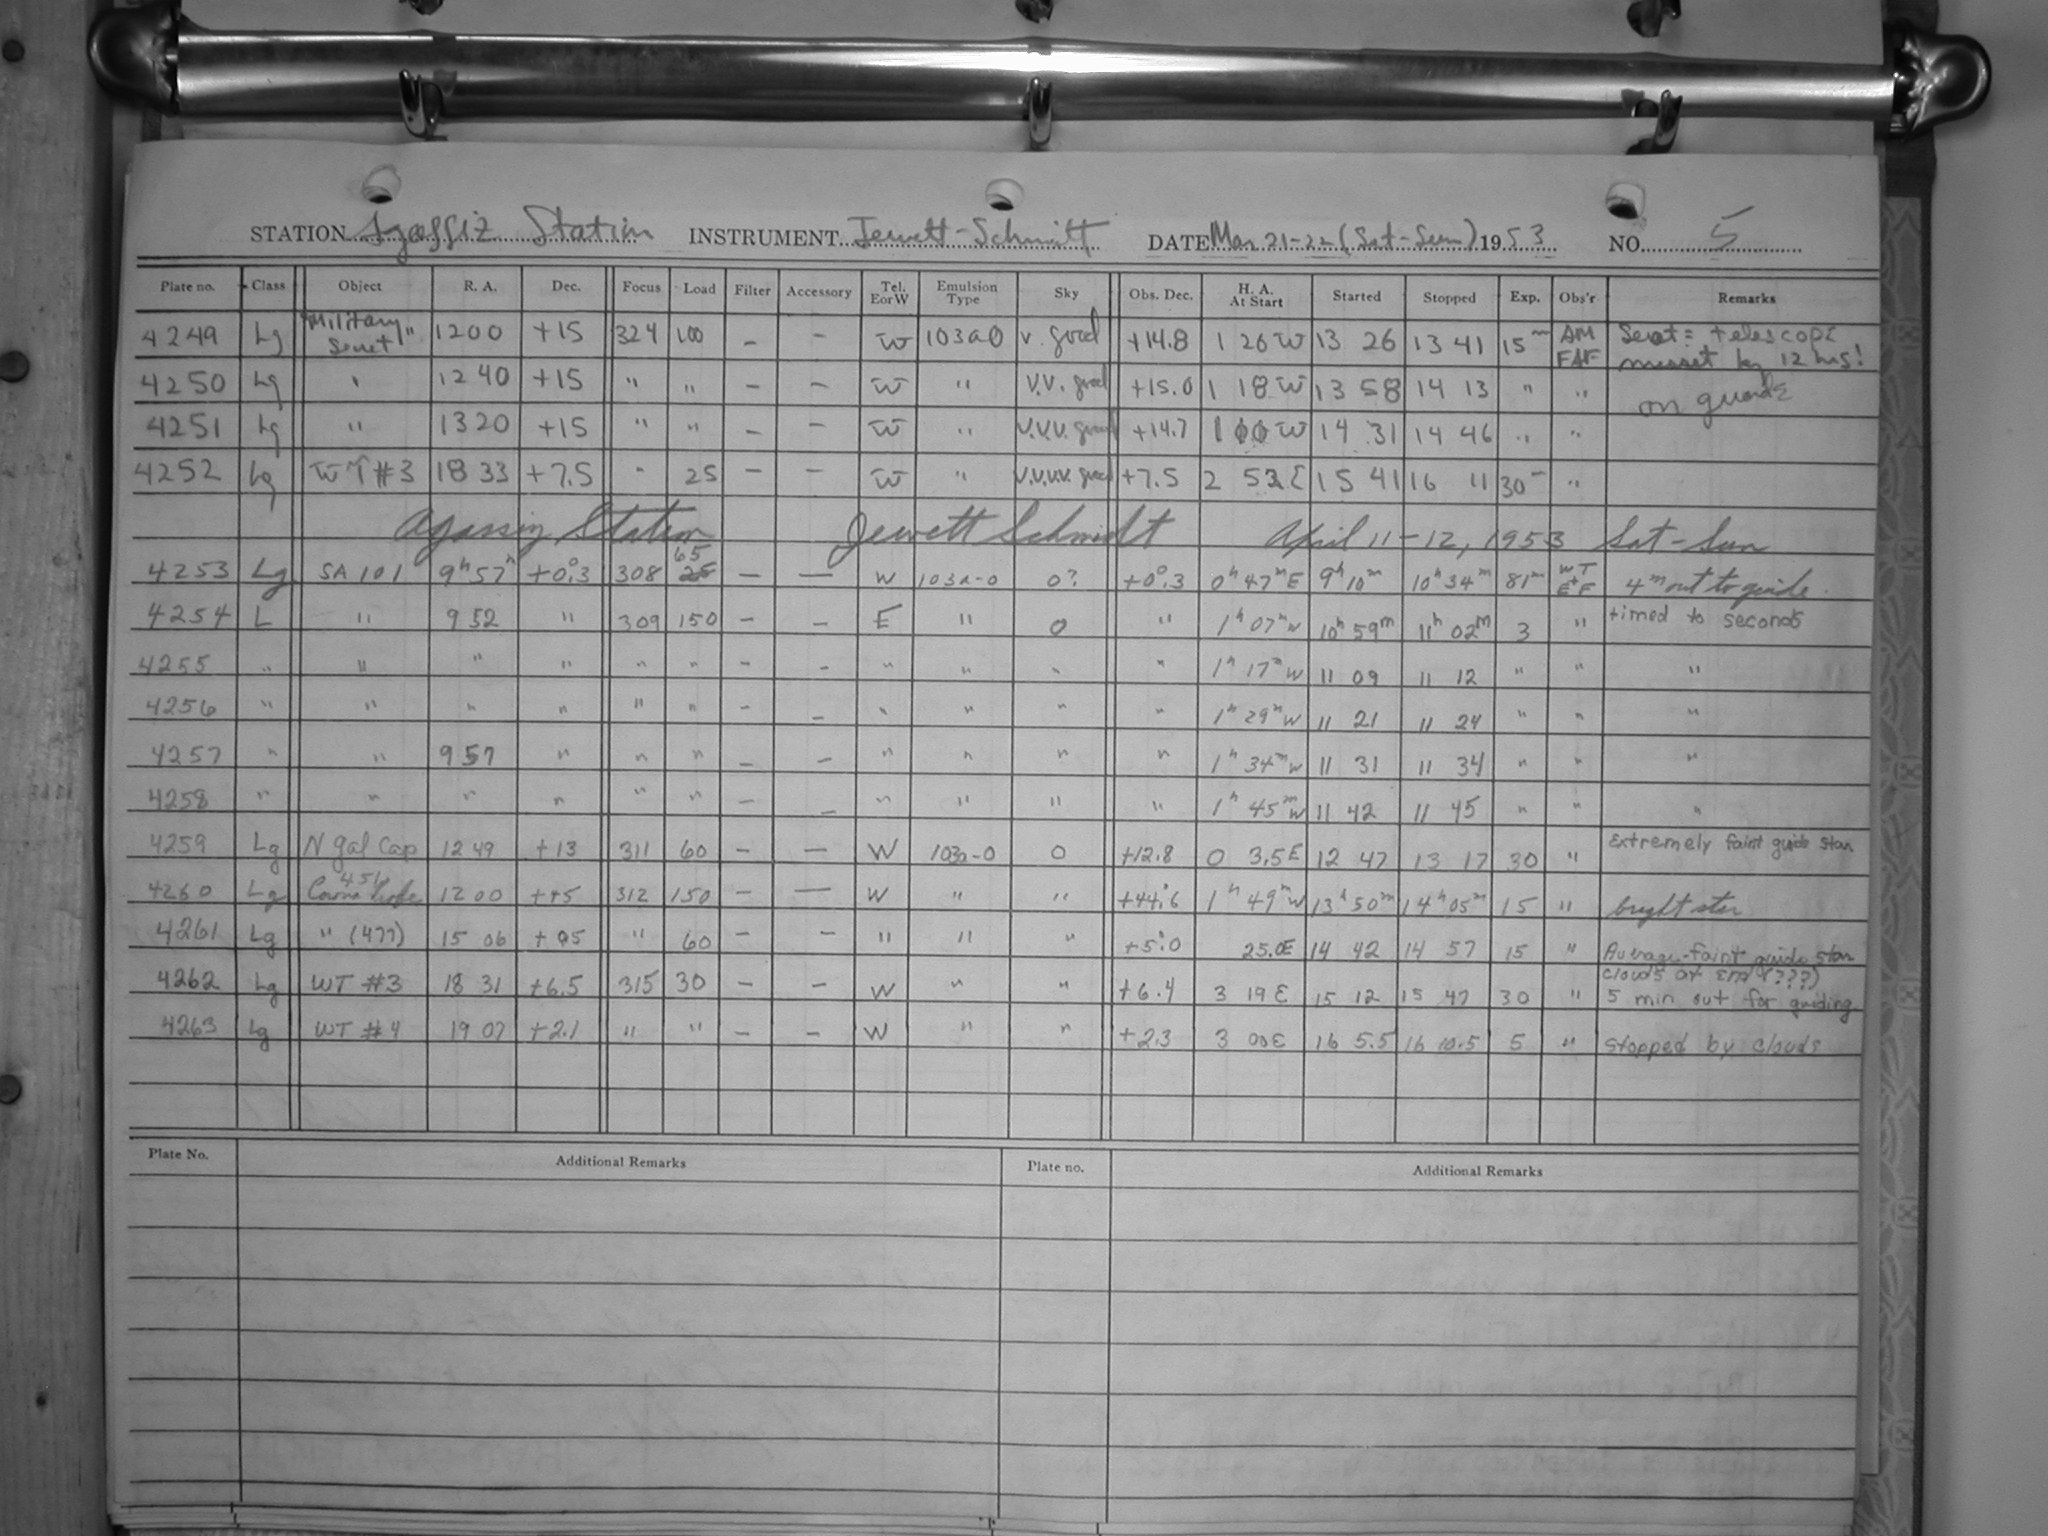 STATION Agassiz Station INSTRUMENT Jewett-Schmitt DATE Mar 21-22 (Sat-Sun) 1953 NO. 5
Plate no. Class Object R. A. Dec. Focus Load Filter Accessory Tel. E or W Emulsion Type Sky Obs. Dec. H. A. At Start Started Stopped Exp. Obs'r Remarks
4249 Lg "Military Secret" 1200 +15 324 100 - - W 103a0 v. good +14.8 1 26 W 13 26 13 41 15m AM FAF Secret = telescope misset by 12 hrs!
4250 Lg " 1240 +15 " " - - W " v.v. good +15.0 1 18 W 13 58 14 13 " " on guide
4251 Lg " 1320 +15 " " - - W " v.v.v. good +14.7 1 00 W 14 31 14 46 " "
4252 Lg WT #3 18 33 +7.5 " 25 - - W " v.v.v.v. good +7.5 2 52 E 15 41 16 11 30m "
Agassiz Station Jewett Schmidt April 11-12, 1953 Sat-Sun
4253 Lg SA 101 9h 57m +0°.3 308 65 - - W 103a-0 0? +0°.3 0h 47m E 9h 10m 10h 34m 81m WT E+F 4m out to guide
4254 L " 9 52 " 309 150 - - E " 0 " 1h 07m W 10h 59m 11h 02m 3 " timed to seconds
4255 " " " " " " - - " " " " 1h 17m W 11 09 11 12 " " "
4256 " " " " " " - " " " " 1h 29m W 11 21 11 24 " " "
4257 " " 9 57 " " " - - " " " " 1h 34m W 11 31 11 34 " " "
4258 " " " " " " - - " " " " 1h 45m W 11 42 11 45 " " "
4259 Lg N gal Cap 12 49 +13 311 60 - - W 103a-0 0 +12.8 0 3.5 E 12 47 13 17 30 " Extremely faint guide star
4260 Lg 451 12 00 +45 312 150 - - W " " +44°.6 1h 49m W 13h 50m 14h 05m 15 " bright star
4261 Lg " (477) 15 06 +05 " 60 - - " " " +5°.0 25.0E 14 42 14 57 15 " Average-faint guide star
4262 Lg WT #3 18 31 +6.5 315 30 - - W " " +6.4 3 19 E 15 12 15 47 30 " clouds at end (???) 5 min out for guiding
4263 Lg WT #4 19 07 +2.1 " " - - W " " +2.3 3 00 E 16 5.5 16 10.5 5 " Stopped by clouds
Plate No. Additional Remarks Plate no. Additional Remarks